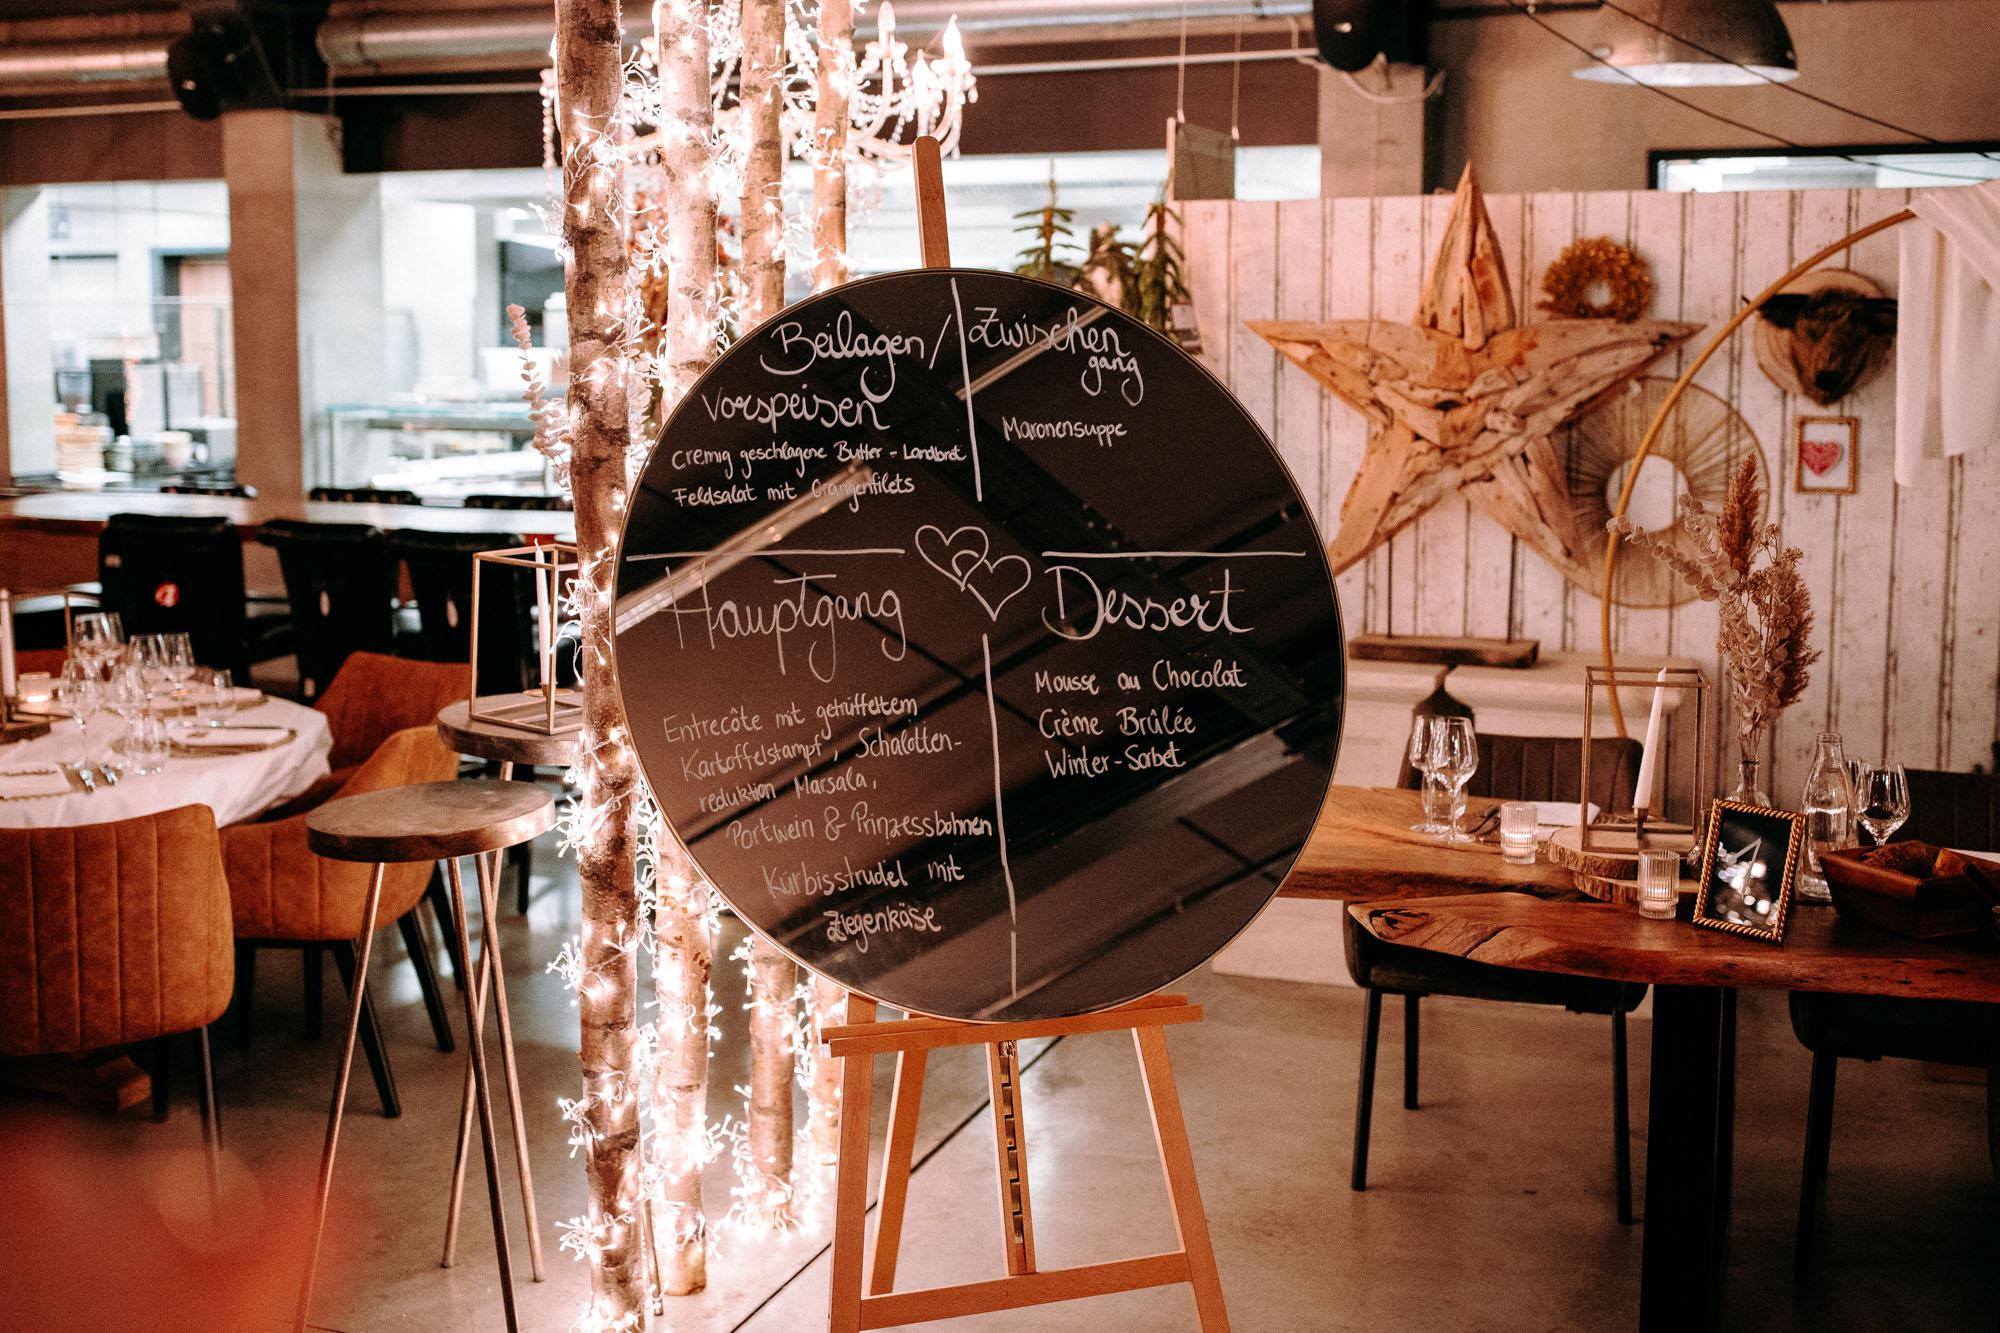 Beilagen/
Vorspeisen
cremig geschlagene Butter - Landbrot
Feldsalat mit Orangenfilets
Zwischen
gang
Maronensuppe
Hauptgang
Entrecôte mit getrüffeltem
Kartoffelstampf, Schalotten-
reduktion Marsala,
Portwein & Prinzessbohnen
Kürbisstrudel mit
Ziegenkäse
Dessert
Mousse au Chocolat
Crème Brûlée
Winter-Sorbet